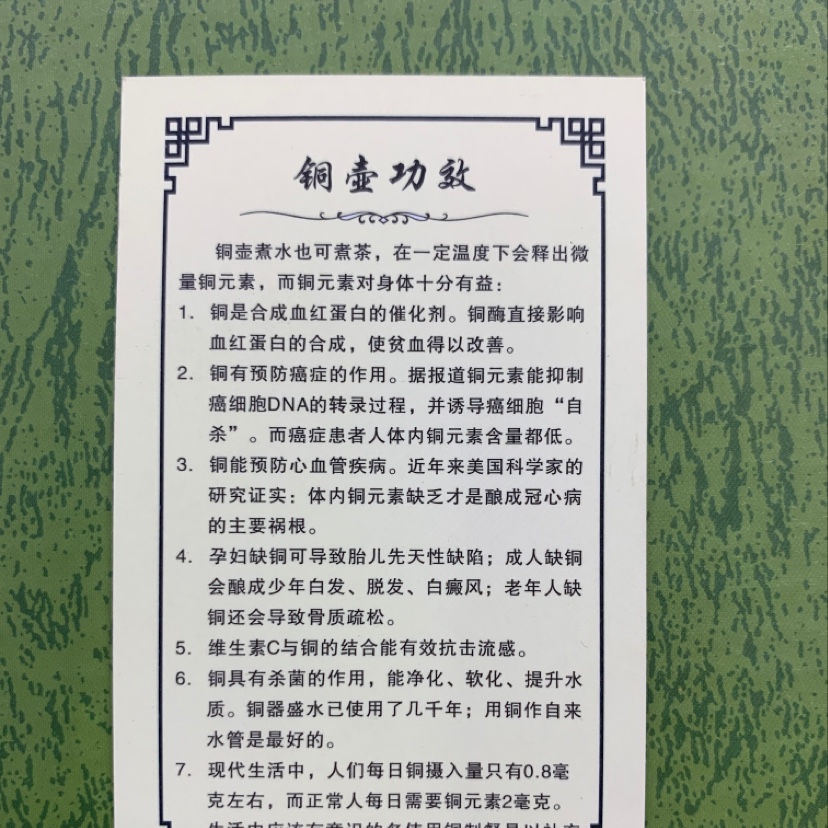 铜壶功效
铜壶煮水也可煮茶，在一定温度下会释出微
量铜元素，而铜元素对身体十分有益：
1. 铜是合成血红蛋白的催化剂。铜酶直接影响
血红蛋白的合成，使贫血得以改善。
2. 铜有预防癌症的作用。据报道铜元素能抑制
癌细胞DNA的转录过程，并诱导癌细胞“自
杀”。而癌症患者人体内铜元素含量都低。
3. 铜能预防心血管疾病。近年来美国科学家的
研究证实：体内铜元素缺乏才是酿成冠心病
的主要祸根。
4. 孕妇缺铜可导致胎儿先天性缺陷；成人缺铜
会酿成少年白发、脱发、白癜风；老年人缺
铜还会导致骨质疏松。
5. 维生素C与铜的结合能有效抗击流感。
6. 铜具有杀菌的作用，能净化、软化、提升水
质。铜器盛水已使用了几千年；用铜作自来
水管是最好的。
7. 现代生活中，人们每日铜摄入量只有0.8毫
克左右，而正常人每日需要铜元素2毫克。